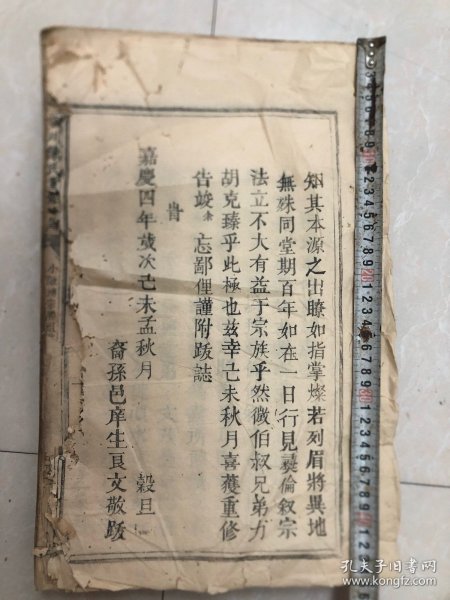 知其本源之出瞭如指掌燦若列眉將異地
無殊同堂期百年如在一日行見彝倫敘宗
法立不大有益于宗族乎然微伯叔兄弟力
胡克臻乎此極也茲幸己未秋月喜獲重修
告竣余忘鄙俚謹附跋誌
旹
嘉慶四年歲次己未孟秋月 穀旦
裔孫邑庠生良文敬跋
孔夫子旧书网
www.kongfz.com